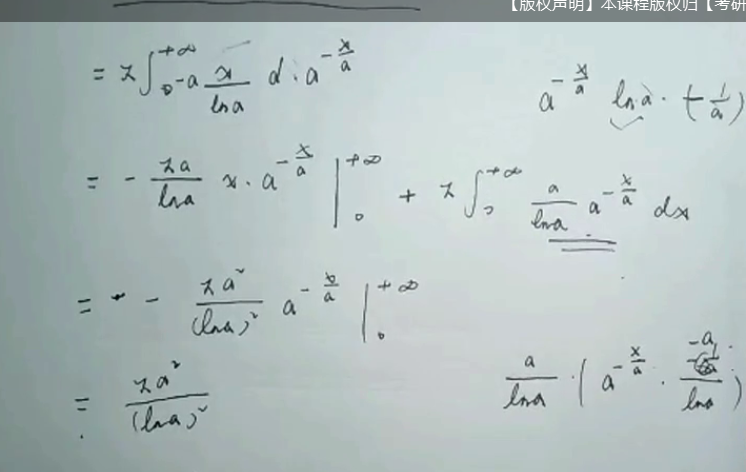 【版权声明】本课程版权归【考研
= π∫₀^{+∞} -a x/lna d a^{-x/a}
a^{-x/a} lna·(-1/a)
= - πa/lna x·a^{-x/a} |₀^{+∞} + π∫₀^{+∞} a/lna a^{-x/a} dx
= - πa²/(lna)² a^{-x/a} |₀^{+∞}
= πa²/(lna)²
a/lna · (a^{-x/a} ·